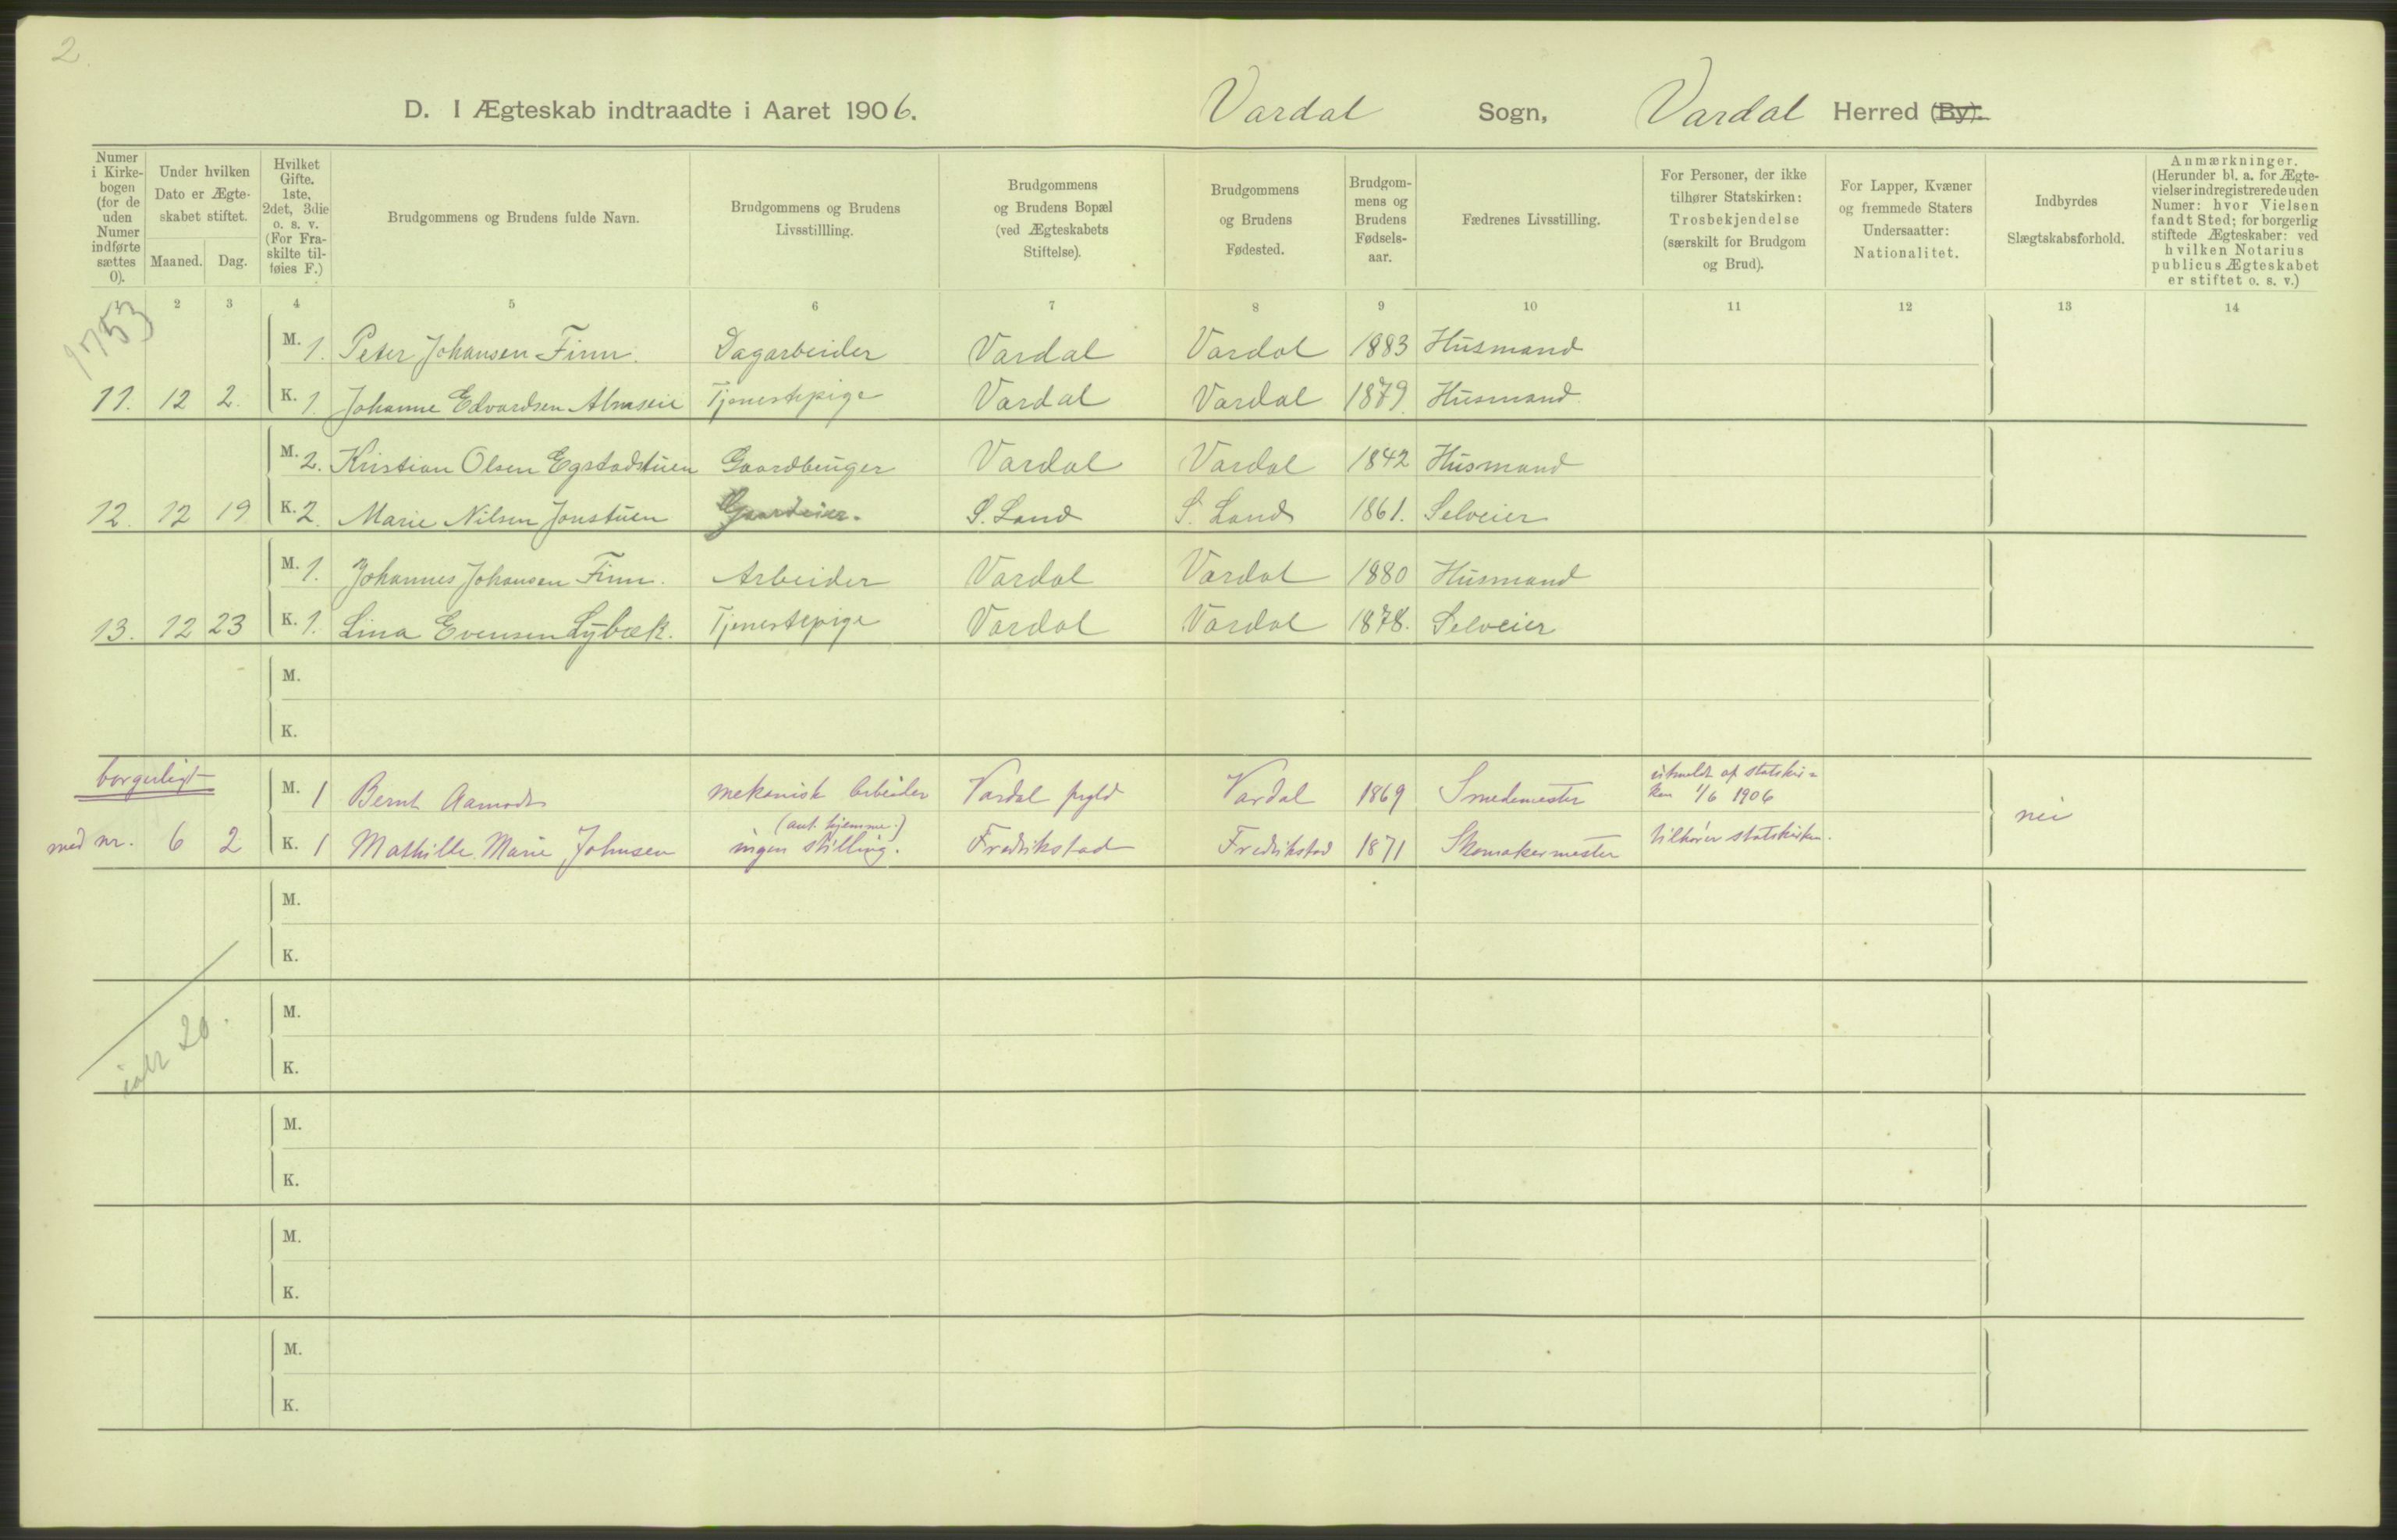 2
D. I Ægteskab indtraadte i Aaret 1906. Vardal Sogn, Vardal Herred (By).
Numer i Kirkebogen (for de uden Numer indførte sættes 0).
Under hvilken Dato er Ægteskabet stiftet.
Maaned. Dag.
Hvilket Gifte. 1ste, 2det, 3die o. s. v. (For Fraskilte tilføies F.)
Brudgommens og Brudens fulde Navn.
Brudgommens og Brudens Livsstillling.
Brudgommens og Brudens Bopæl (ved Ægteskabets Stiftelse).
Brudgommens og Brudens Fødested.
Brudgommens og Brudens Fødselsaar.
Fædrenes Livsstilling.
For Personer, der ikke tilhører Statskirken: Trosbekjendelse (særskilt for Brudgom og Brud).
For Lapper, Kvæner og fremmede Staters Undersaatter: Nationalitet.
Indbyrdes Slægtskabsforhold.
Anmærkninger. (Herunder bl. a. for Ægtevielser indregistrerede uden Numer: hvor Vielsen fandt Sted; for borgerlig stiftede Ægteskaber: ved hvilken Notarius publicus Ægteskabet er stiftet o. s. v.)
1 2 3 4 5 6 7 8 9 10 11 12 13 14
M. 1. Peter Johansen Finn. Dagarbeider Vardal Vardal 1883 Husmand
11. 12 2. K. 1. Johanne Edvardsen Almseie Tjenestepige Vardal Vardal 1879. Husmand.
M. 2. Kristian Olsen Egstadstuen Gaardbruger Vardal Vardal 1842 Husmand
12. 12 19 K. 2 Marie Nilsen Jonstuen Gaardeier. S. Land S. Land 1861. Selveier
M. 1. Johannes Johansen Finn. Arbeider Vardal Vardal 1880 Husmand
13. 12 23 K. 1. Lina Evensen Lybæk. Tjenestepige Vardal Vardal 1878. Selveier
M.
K.
borgerligt
M. 1 Bernt Aamodt mekanisk arbeider Vardal prgld Vardal 1869 Smedemester utmeldt af statskir=
ken 1/6 1906
nei
med nr. 6 2 K. 1 Mathilde Marie Johnsen (ant. hjemme.)
ingen stilling. Fredrikstad Fredrikstad 1871 Skomakermester tilhører statskirken.
M.
K.
M.
ialt 20.
K.
M.
K.
M.
K.
M.
K.